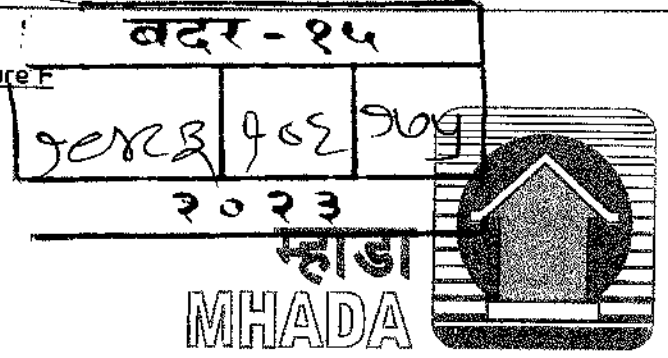 बदर - १५
ure F
१०६ १७५
२०२३
म्हाडा
MHADA